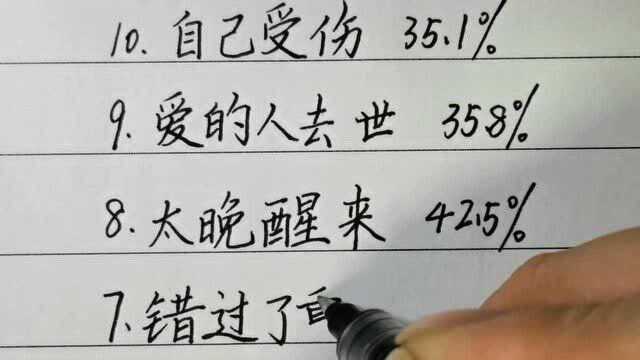 10. 自己受伤 35.1%
9. 爱的人去世 35.8%
8. 太晚醒来 42.5%
7. 错过了